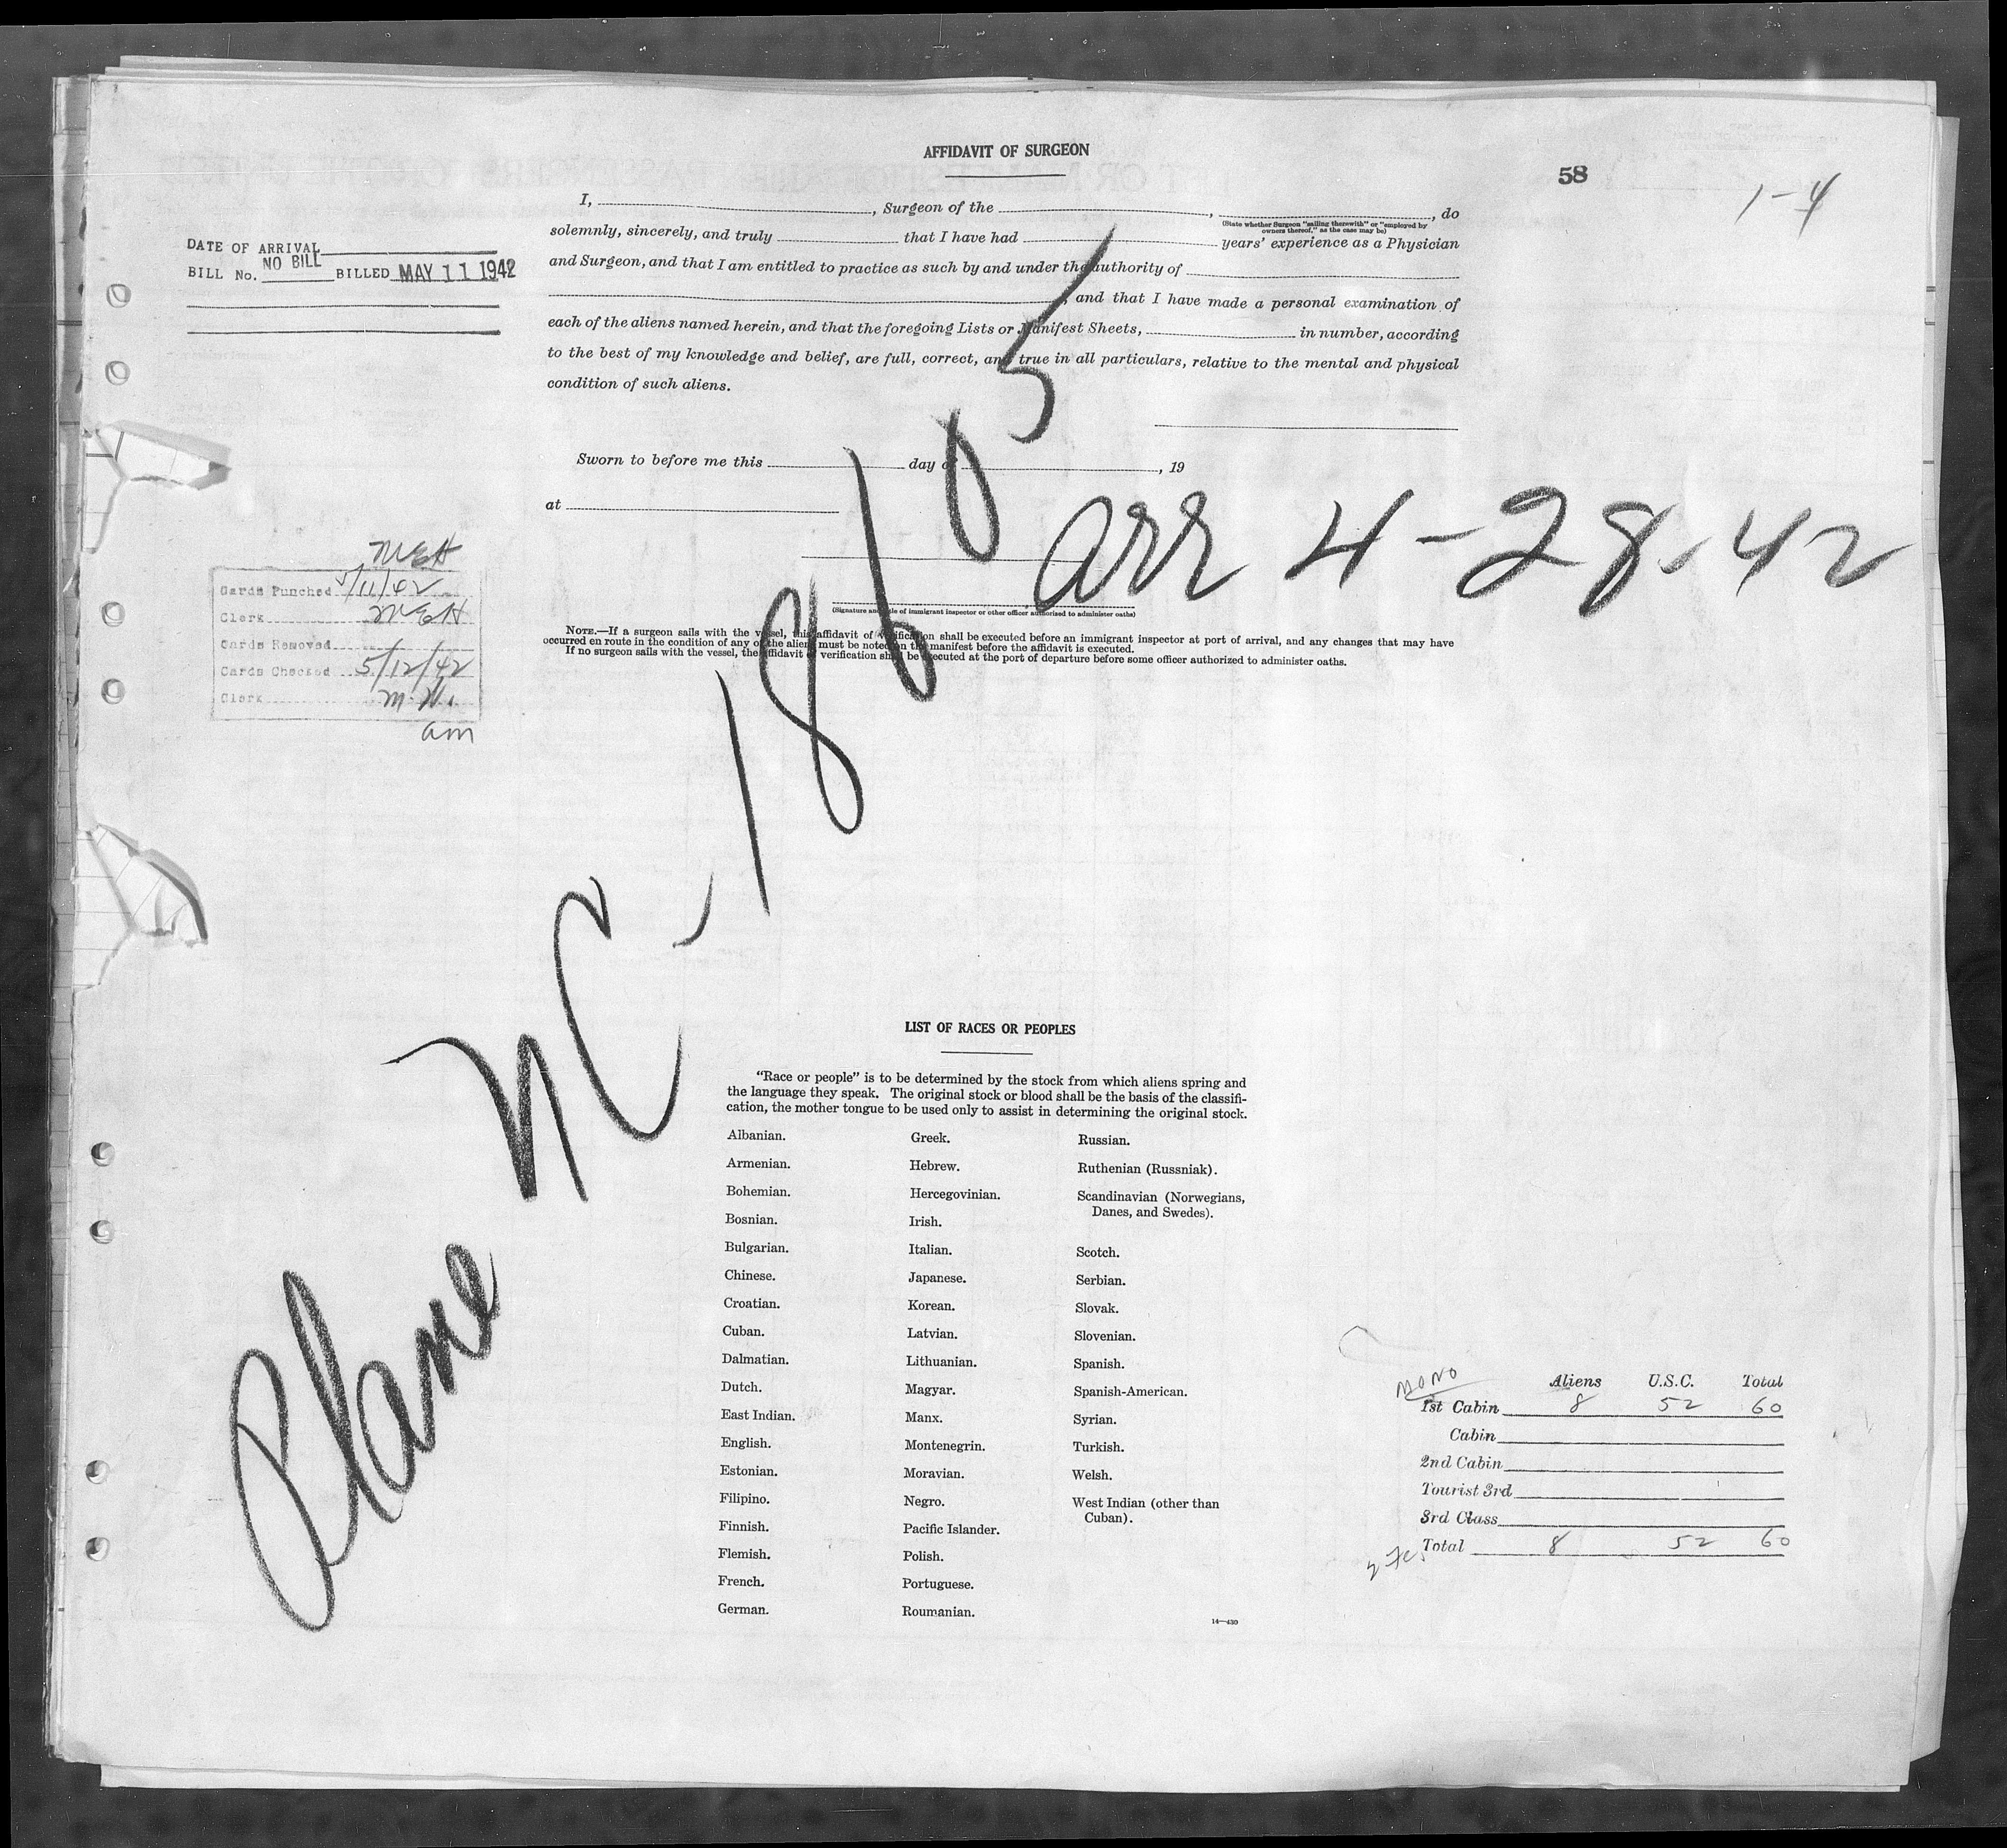 AFFIDAVIT OF SURGEON
58
1-4
I, , Surgeon of the , , do
(State whether Surgeon "sailing therewith" or "employed by
owners thereof," as the case may be)
solemnly, sincerely, and truly that I have had years' experience as a Physician
and Surgeon, and that I am entitled to practice as such by and under the authority of
, and that I have made a personal examination of
each of the aliens named herein, and that the foregoing Lists or Manifest Sheets, in number, according
to the best of my knowledge and belief, are full, correct, and true in all particulars, relative to the mental and physical
condition of such aliens.
Sworn to before me this day of , 19
at
(Signature and title of immigrant inspector or other officer authorized to administer oaths)
NOTE.—If a surgeon sails with the vessel, this affidavit of verification shall be executed before an immigrant inspector at port of arrival, and any changes that may have
occurred en route in the condition of any of the aliens must be noted on the manifest before the affidavit is executed.
If no surgeon sails with the vessel, the affidavit of verification shall be executed at the port of departure before some officer authorized to administer oaths.
DATE OF ARRIVAL
BILL No. NO BILL BILLED MAY 11 1942
MEH
Cards Punched 5/11/42
Clerk MEH
Cards Removed
Cards Checked 5/12/42
Clerk M.W.
am
Plane NC-18605
arr 4-28-42
LIST OF RACES OR PEOPLES
"Race or people" is to be determined by the stock from which aliens spring and
the language they speak. The original stock or blood shall be the basis of the classifi-
cation, the mother tongue to be used only to assist in determining the original stock.
Albanian.
Armenian.
Bohemian.
Bosnian.
Bulgarian.
Chinese.
Croatian.
Cuban.
Dalmatian.
Dutch.
East Indian.
English.
Estonian.
Filipino.
Finnish.
Flemish.
French.
German.
Greek.
Hebrew.
Hercegovinian.
Irish.
Italian.
Japanese.
Korean.
Latvian.
Lithuanian.
Magyar.
Manx.
Montenegrin.
Moravian.
Negro.
Pacific Islander.
Polish.
Portuguese.
Roumanian.
Russian.
Ruthenian (Russniak).
Scandinavian (Norwegians,
Danes, and Swedes).
Scotch.
Serbian.
Slovak.
Slovenian.
Spanish.
Spanish-American.
Syrian.
Turkish.
Welsh.
West Indian (other than
Cuban).
14—430
Aliens U.S.C. Total
1st Cabin 8 52 60
Cabin
2nd Cabin
Tourist 3rd
3rd Class
Total 8 52 60